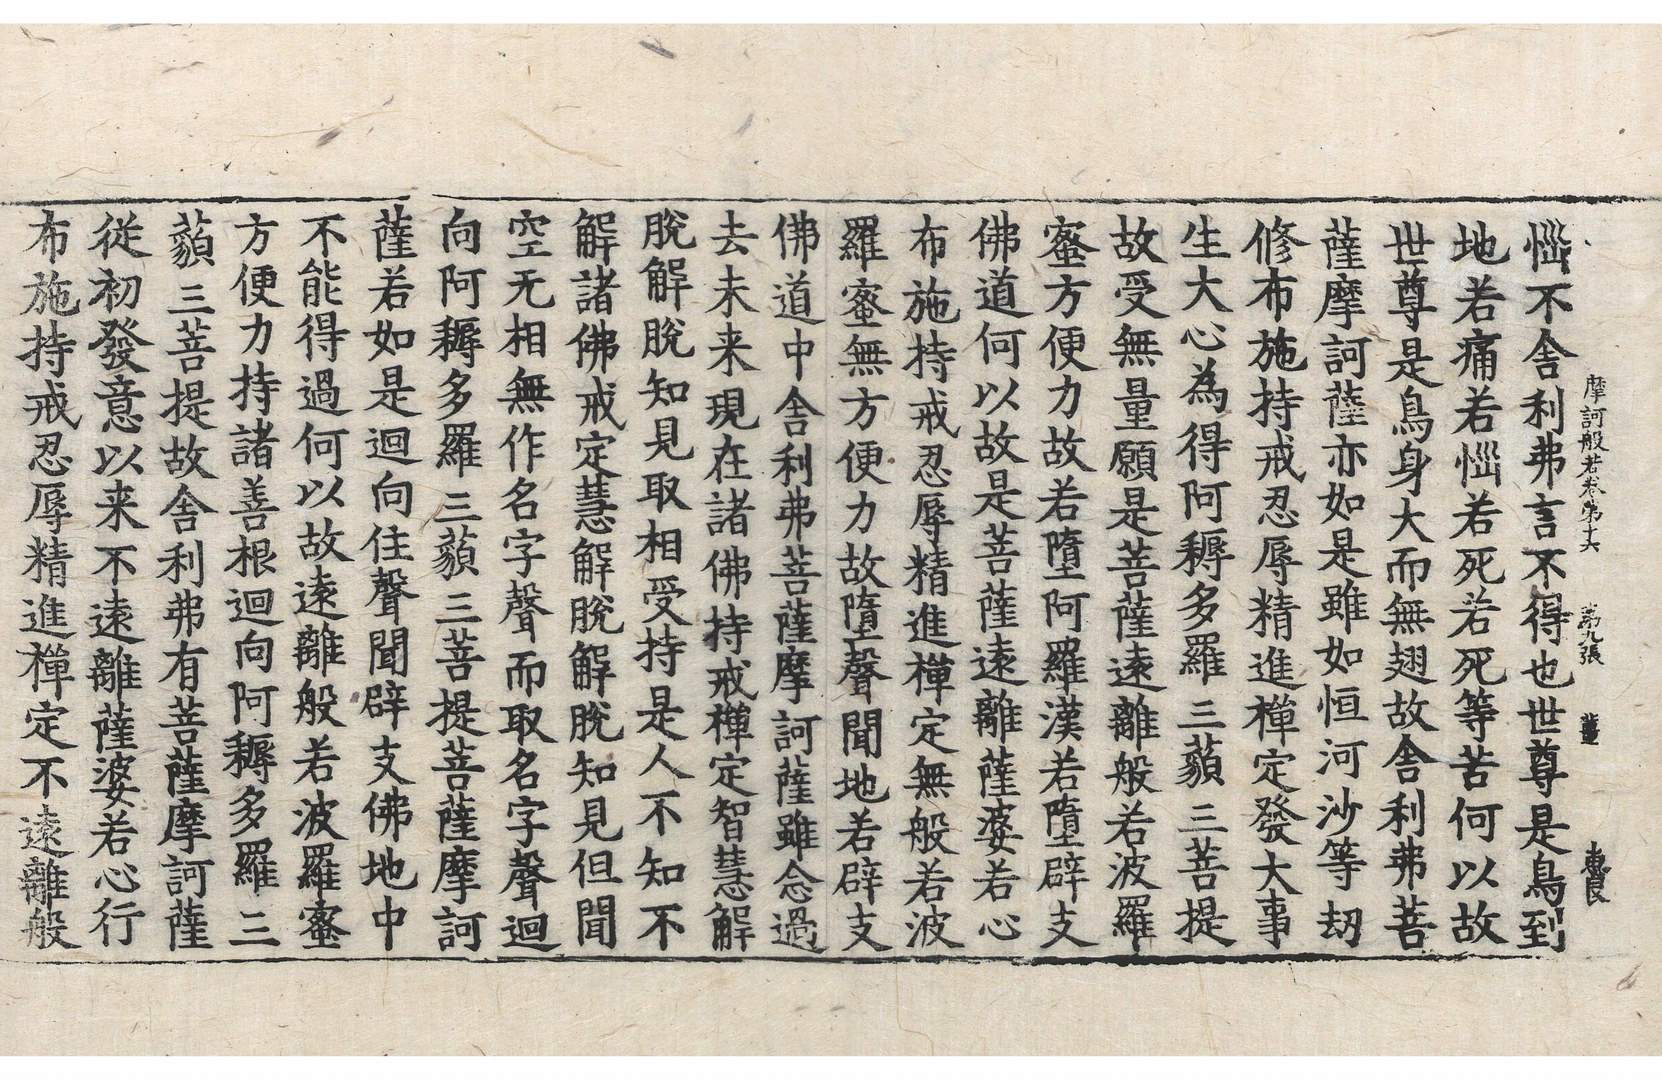 摩訶般若卷第十六 第九張
惱不舍利弗言不得也世尊是鳥到
地若痛若惱若死若死等苦何以故
世尊是鳥身大而無翅故舍利弗菩
薩摩訶薩亦如是雖如恒河沙等劫
修布施持戒忍辱精進禪定發大事
生大心為得阿耨多羅三藐三菩提
故受無量願是菩薩遠離般若波羅
蜜方便力故若墮阿羅漢若墮辟支
佛道何以故是菩薩遠離薩婆若心
布施持戒忍辱精進禪定無般若波
羅蜜無方便力故墮聲聞地若辟支
佛道中舍利弗菩薩摩訶薩雖念過
去未来現在諸佛持戒禪定智慧解
脫解脫知見取相受持是人不知不
解諸佛戒定慧解脫解脫知見但聞
空无相無作名字聲而取名字聲迴
向阿耨多羅三藐三菩提菩薩摩訶
薩若如是迴向住聲聞辟支佛地中
不能得過何以故遠離般若波羅蜜
方便力持諸善根迴向阿耨多羅三
藐三菩提故舍利弗有菩薩摩訶薩
從初發意以来不遠離薩婆若心行
布施持戒忍辱精進禪定不遠離般